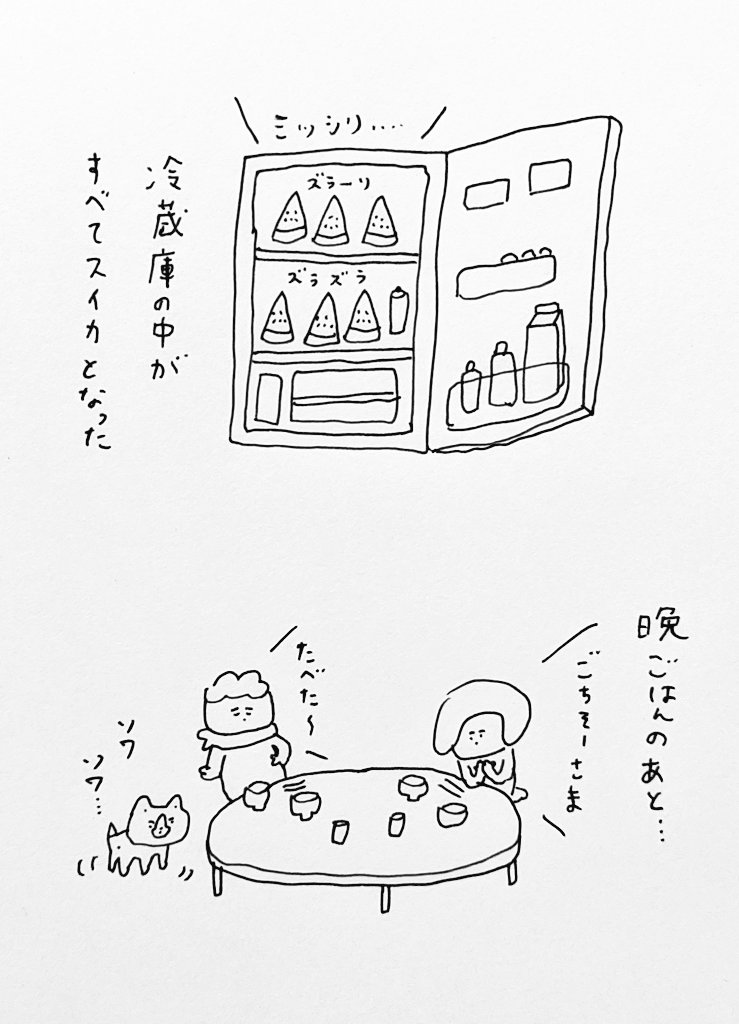 ミッシリ‥‥
ズラーリ
ズラズラ
冷蔵庫の中が
すべてスイカとなった
晩ごはんのあと…
ごちそーさま
たべた〜
ソワ
ソワ…